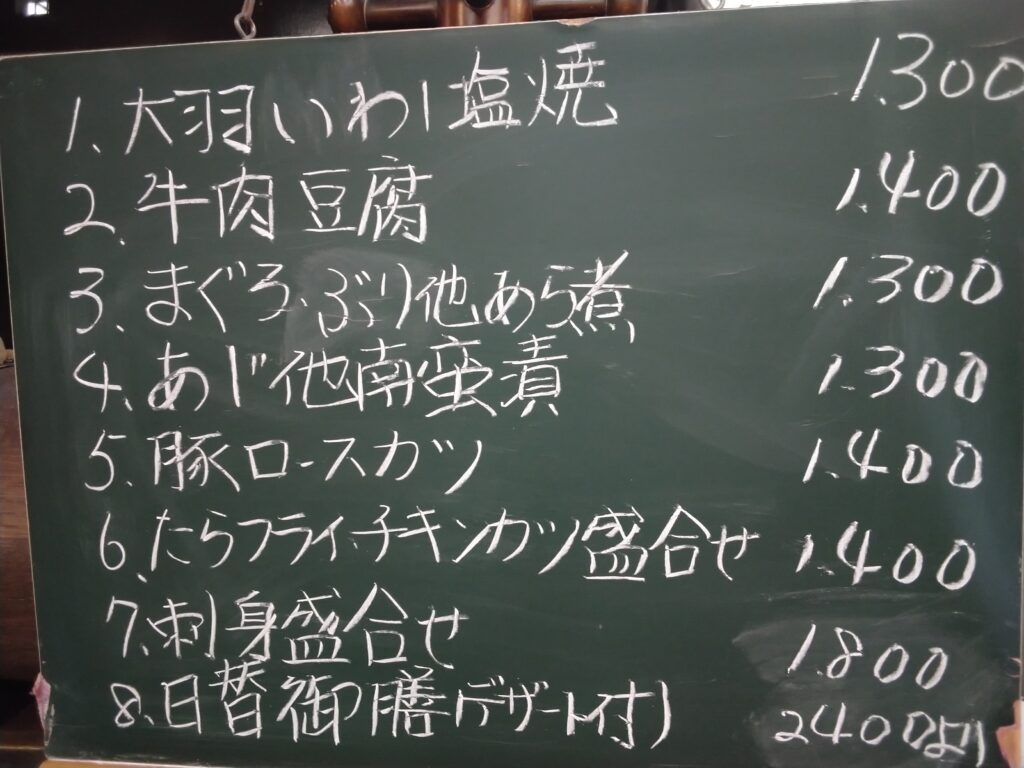 1. 大羽いわし塩焼 1.300
2. 牛肉豆腐 1.400
3. まぐろ、ぶり他あら煮 1.300
4. あじ他南蛮漬 1.300
5. 豚ロースカツ 1.400
6. たらフライ、チキンカツ盛合せ 1.400
7. 刺身盛合せ 1.800
8. 日替御膳(デザート付) 2400より